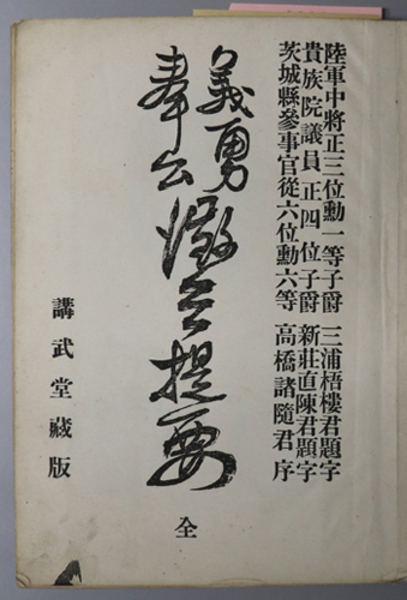 陸軍中將正三位勳一等子爵 三浦梧樓君題字
貴族院議員正四位子爵 新莊直陳君題字
茨城縣參事官從六位勳六等 高橋諸隨君序
義勇
奉公
提要
全
講武堂藏版